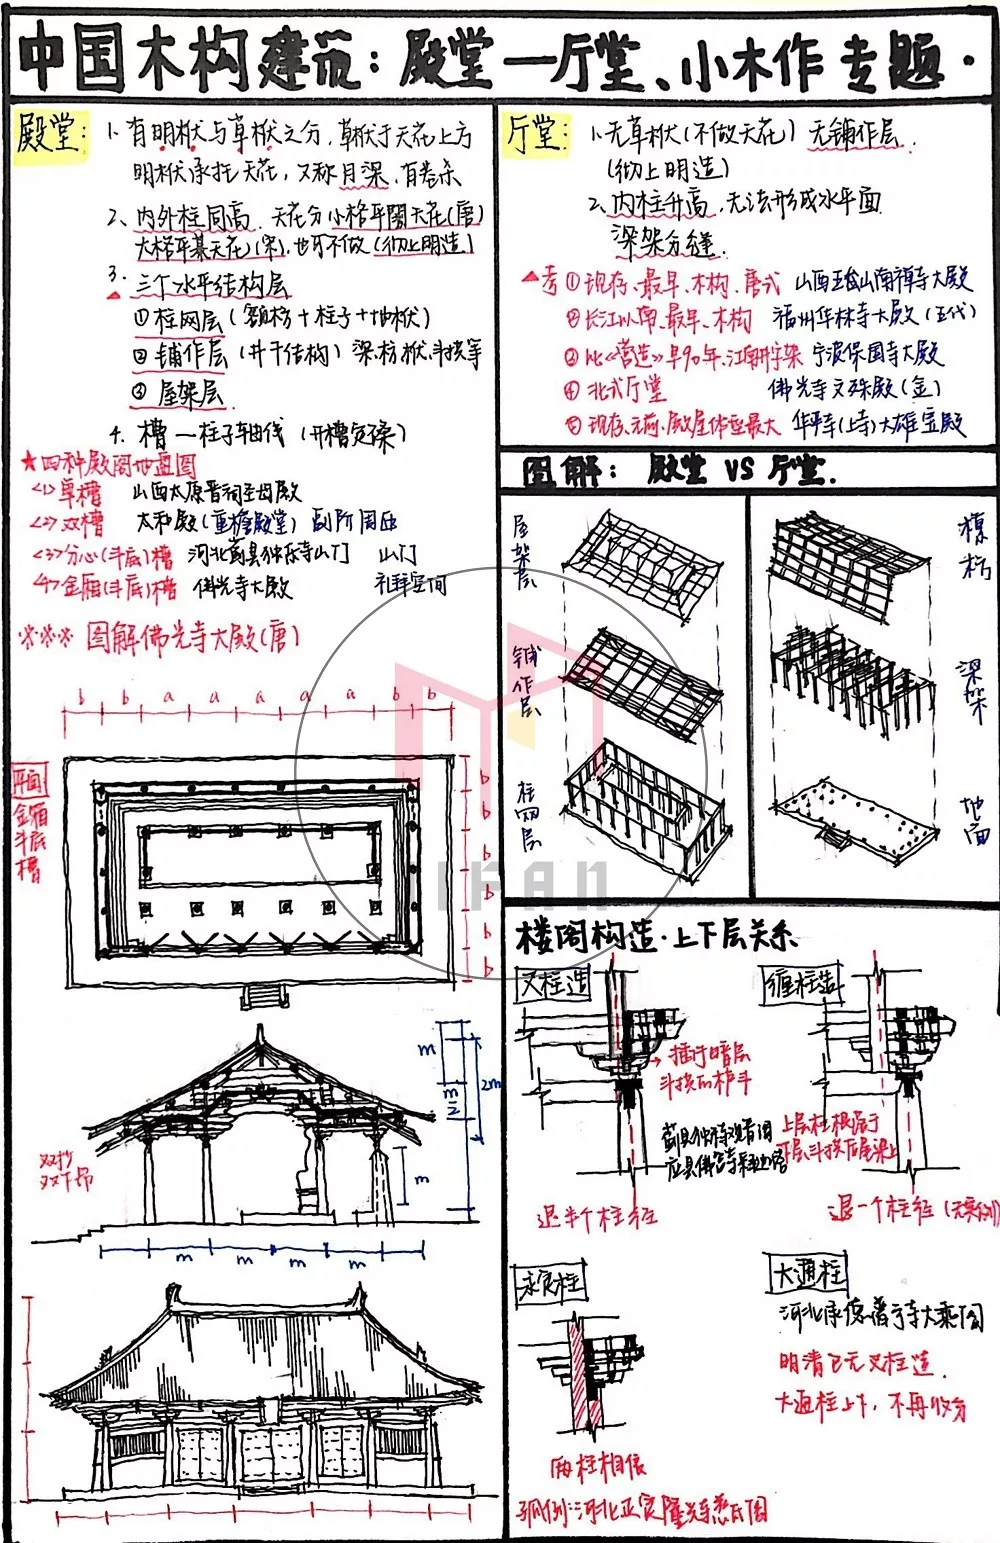 中国木构建筑：殿堂—厅堂、小木作专题.
殿堂：
1. 有明栿与草栿之分，草栿于天花上方
明栿承托天花，又称月梁，有卷杀
2、内外柱同高，天花分小格平闇天花(唐)
大格平棊天花(宋)，也可不做(彻上明造)
3. 三个水平结构层
①柱网层(额枋+柱子+地栿)
②铺作层(井干结构)梁.枋.栿.斗拱等
③屋架层
4. 槽—柱子轴线(开槽定磉)
★四种殿阁地盘图
<1>单槽 山西太原晋祠圣母殿
<2>双槽 太和殿(重檐殿堂) 副阶周匝
<3>分心(斗底)槽 河北蓟县独乐寺山门 山门
<4>金厢(斗底)槽 佛光寺大殿 礼拜空间
※※※ 图解佛光寺大殿(唐)
b b a a a a a b b
平面
金厢斗底槽
b
b
b
b
b
b
m
2m
m
双抄
双下昂
m m m m
厅堂：
1.无草栿(不做天花) 无铺作层.
(彻上明造)
2.内柱升高，无法形成水平面
梁架分缝.
▲考①现存、最早、木构、唐代 山西五台山南禅寺大殿
②长江以南、最早、木构 福州华林寺大殿(五代)
③比《营造》早90年、江南 宁波保国寺大殿
④北式厅堂 佛光寺文殊殿(金)
⑤现存、元前、殿屋体量最大 华严寺(上寺)大雄宝殿
图解：殿堂 VS 厅堂.
屋架层
铺作层
柱网层
檩枋
梁架
地面
楼阁构造·上下层关系
叉柱造
→插于暗层
斗拱的栌斗
蓟县独乐寺观音阁
退半个柱径
缠柱造
上层柱根落于
下层斗拱后尾梁上
退一个柱径
永定柱
两柱相偎
孤例:河北正定隆兴寺慈氏阁
大通柱
河北承德普宁寺大乘阁
明清已无叉柱造.
大通柱上下，不再收分